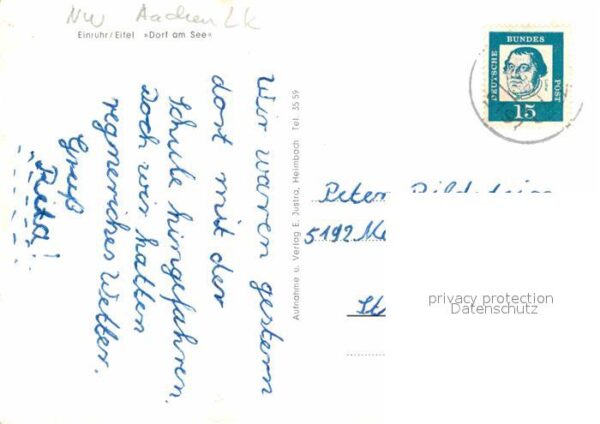 NW Aachen LK
Einruhr/Eifel »Dorf am See«
Wir waren gestern
dort mit der
Schule hingefahren.
Doch wir hatten
regnerisches Wetter.
Gruß
Rita!
Aufnahme u. Verlag E. Justra, Heimbach Tel. 3559
DEUTSCHE BUNDES POST
15
Peter
5192
privacy protection
Datenschutz